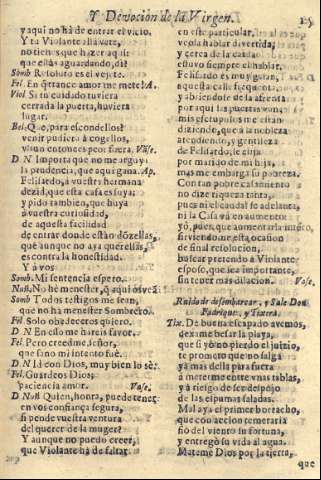 Y Devocion de la Virgen. 15
y aqui no hà de entrar el vicio.
Y tu Violante alhaveta,
no tienes que hazer aqui
que ellas aguardando, di?
Somb. Resoluto es el vejete.
Fel. En
trance amor me mete!
Viol. Si tu cuidado tuviera
cerrada la puerta, huviera
lugar.
Bel. Que, para esconderlos?
venir pudiera à cogerlos,
visto entonces peor fuera. Vase.
D N Importa que no me arguya
la prudencia, que aqui gana. Ap.
Felisardo, à vuestra hermana
dezid, que esta casa es suya,
y pido tambien, que huya
à vuestra curiosidad,
de aquesta facilidad
de entrar donde estàn dõzellas,
que aunque no aya querellas,
es contra la honestidad.
Y à vos
Somb. Mi sentencia espero.
Nuñ. No he menester,
aqui
Somb Todos testigos me sean,
que no hà menester Sombrero.
Fel Solo obedeceros quiero.
D N En esso me hareis favor.
Fel. Pero creedme, señor,
que sano mi intento fuè.
D N Id con Dios, muy bien lo sè:
Fel. Guardeos Dios,
paciencia amor. Vase.
D Nuñ Quien, honra, puede tener
en vos confiança segura,
si pende vuestra ventura
del querer de la muger?
Y aunque no puedo creer,
que Violante hà de faltar
en este particular,
veola hablar divertida;
y cerca de la caida
estuvo siempre el hablar.
Felisardo es muy galan,
aquesta calle frequenta,
y abiendole de la afrenta
por aqui las puertas van;
mis escrupulos me estàn
diziendo, que à la nobleza
atendiendo, y gentileza
de Felisardo, le elija
por marido de mi hija,
mas me embarga su pobreza.
Con tan pobre casamiento
no dize riqueza tanta,
pues ni el caudal se adelanta,
ni la Casa và en aumento;
yo, pues, que aumentarla intento,
sirviendome esta ocasion
de final resolucion,
buscar pretendo à Violante
esposo, que sea importante,
sin tener mas dilacion. Vase.
Ruido de desembarcar, y Sale Don
Fadrique, y Tixera.
Tix. De buena escapado avemos,
dexame besar la playa,
que si yo no pierdo el juizio,
te prometo que no salga
ya mas della para fuera
à meterme entre vnas tablas,
y à riesgo de ser despojo
de las espumas saladas.
Mal aya el primer borracho,
que con accion temeraria
fiò del viento su fortuna,
y entregò su vida al agua.
Mateme Dios por la tierra,
que